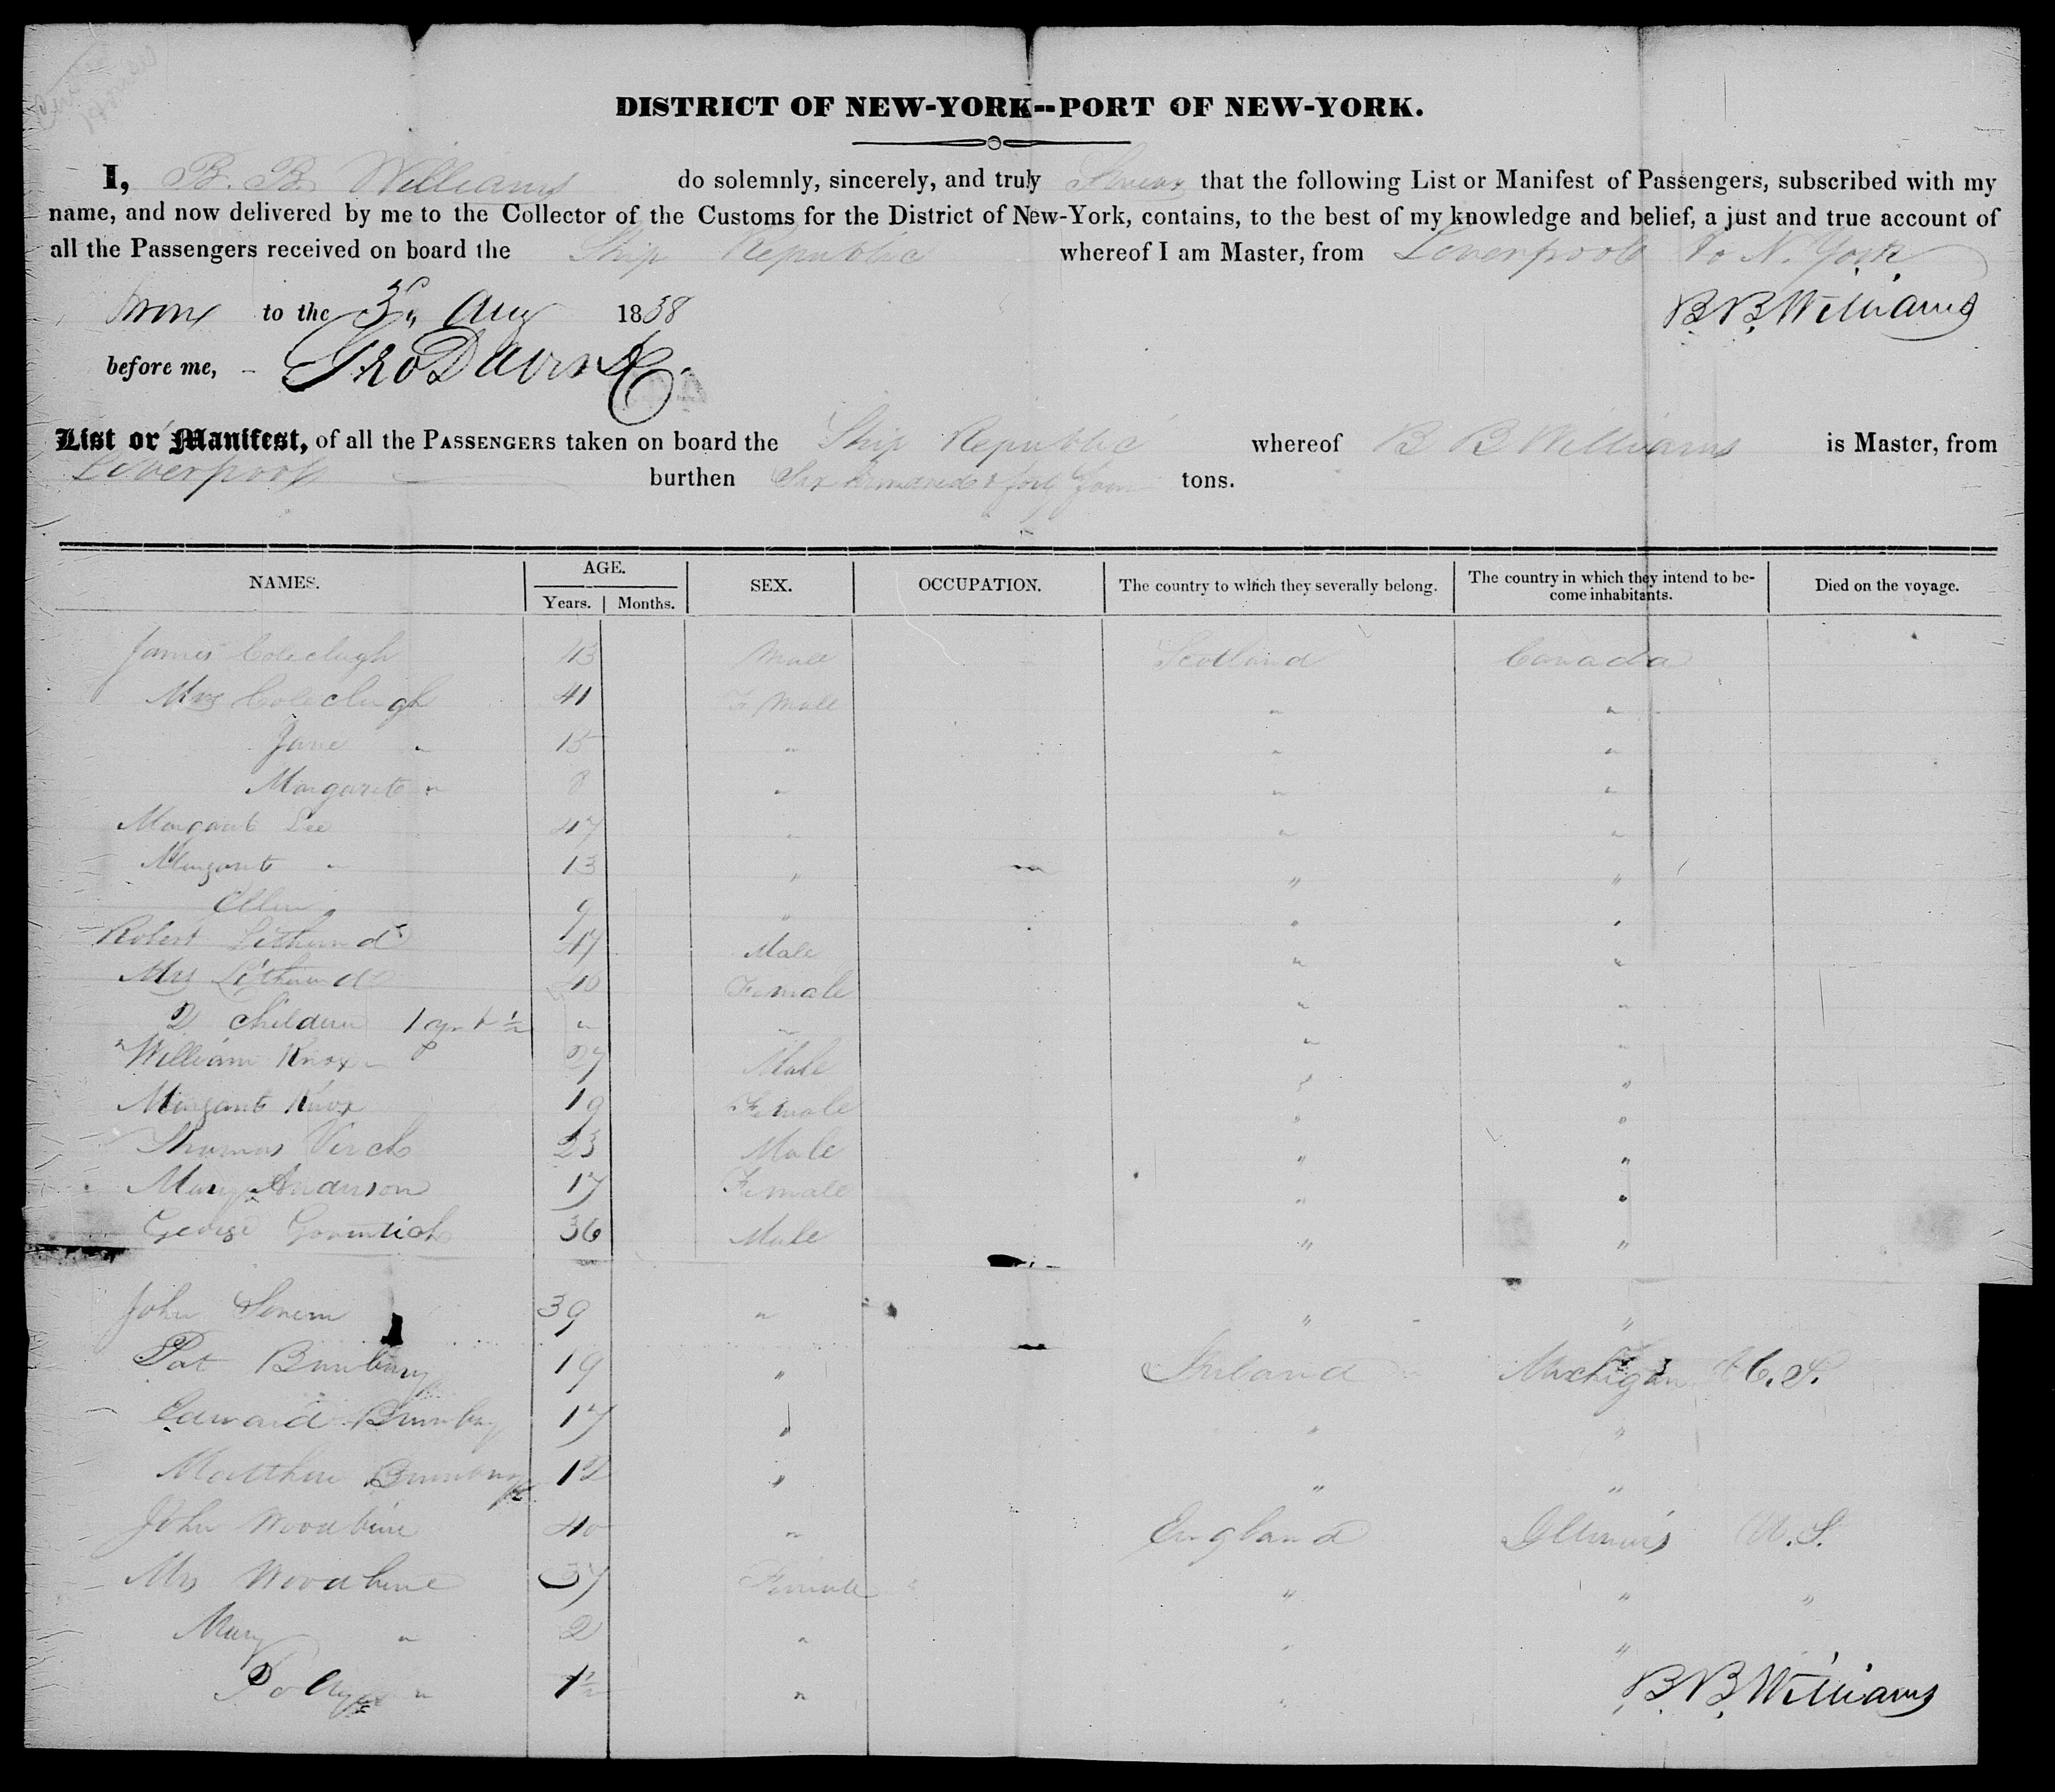 DISTRICT OF NEW-YORK--PORT OF NEW-YORK.
I, B. B. Williams do solemnly, sincerely, and truly Swear that the following List or Manifest of Passengers, subscribed with my
name, and now delivered by me to the Collector of the Customs for the District of New-York, contains, to the best of my knowledge and belief, a just and true account of
all the Passengers received on board the Ship Republic whereof I am Master, from Liverpool to N. York
Sworn to the 3d Aug 1838 B. B. Williams
before me, Geo Davis
List or Manifest, of all the PASSENGERS taken on board the Ship Republic whereof B B Williams is Master, from
Liverpool burthen Six hundred & forty Four tons.
NAMES. AGE. Years. Months. SEX. OCCUPATION. The country to which they severally belong. The country in which they intend to become inhabitants. Died on the voyage.
James Coleclugh 43 Male Scotland Canada
Mrs Coleclugh 41 Female " "
Jane " 15 " " "
Margarete " 8 " " "
Margaret Lee 47 " " "
Margaret " 13 " " "
Ellen 9 " " "
Robert 47 Male " "
Mrs 40 Female " "
2 Children 1 & 1/2 " " " "
William Knox 27 Male " "
Margaret Knox 19 Female " "
Thomas 23 Male " "
Mary Anderson 17 Female " "
George 36 Male " "
John 39 " " "
Pat Bunbury 19 " Ireland Michigan U. S.
Edward Bunbury 17 " " "
Matthew Bunbury 12 " " "
John Woodbine 40 " England Illinois U. S.
Mrs Woodbine 37 Female " " "
Mary " 2 " " "
Polly " 1 1/2 " "
B. B. Williams